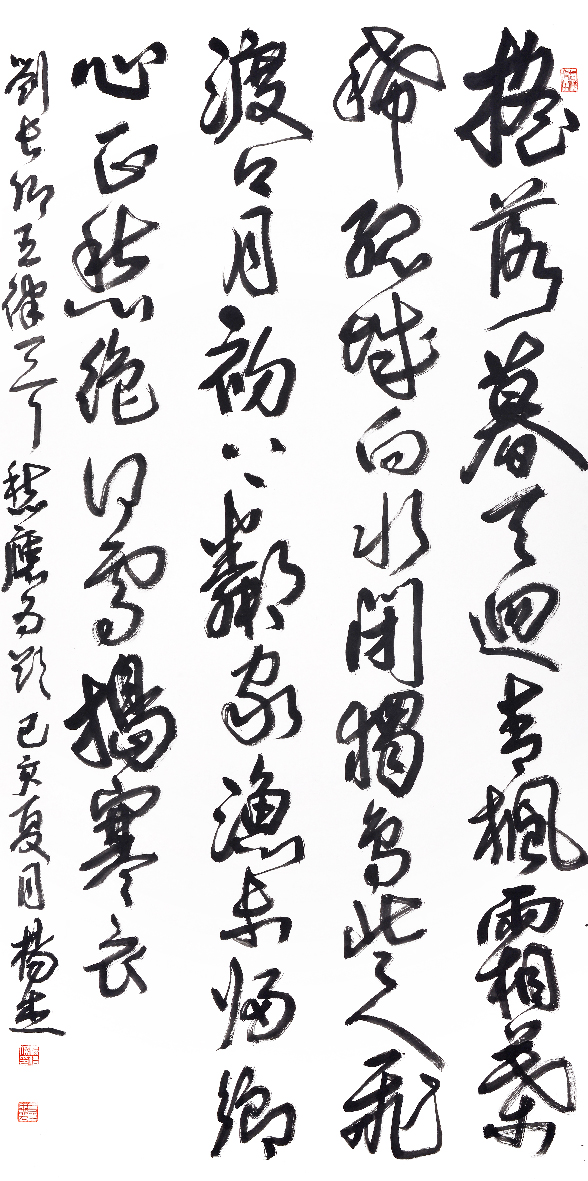 搖落暮天迴青楓霜葉
稀孤城向水閉獨鳥背人飛
渡口月初上鄰家漁未归鄉
心正愁絕何處搗寒衣
劉長卿五律 己亥夏月 楊